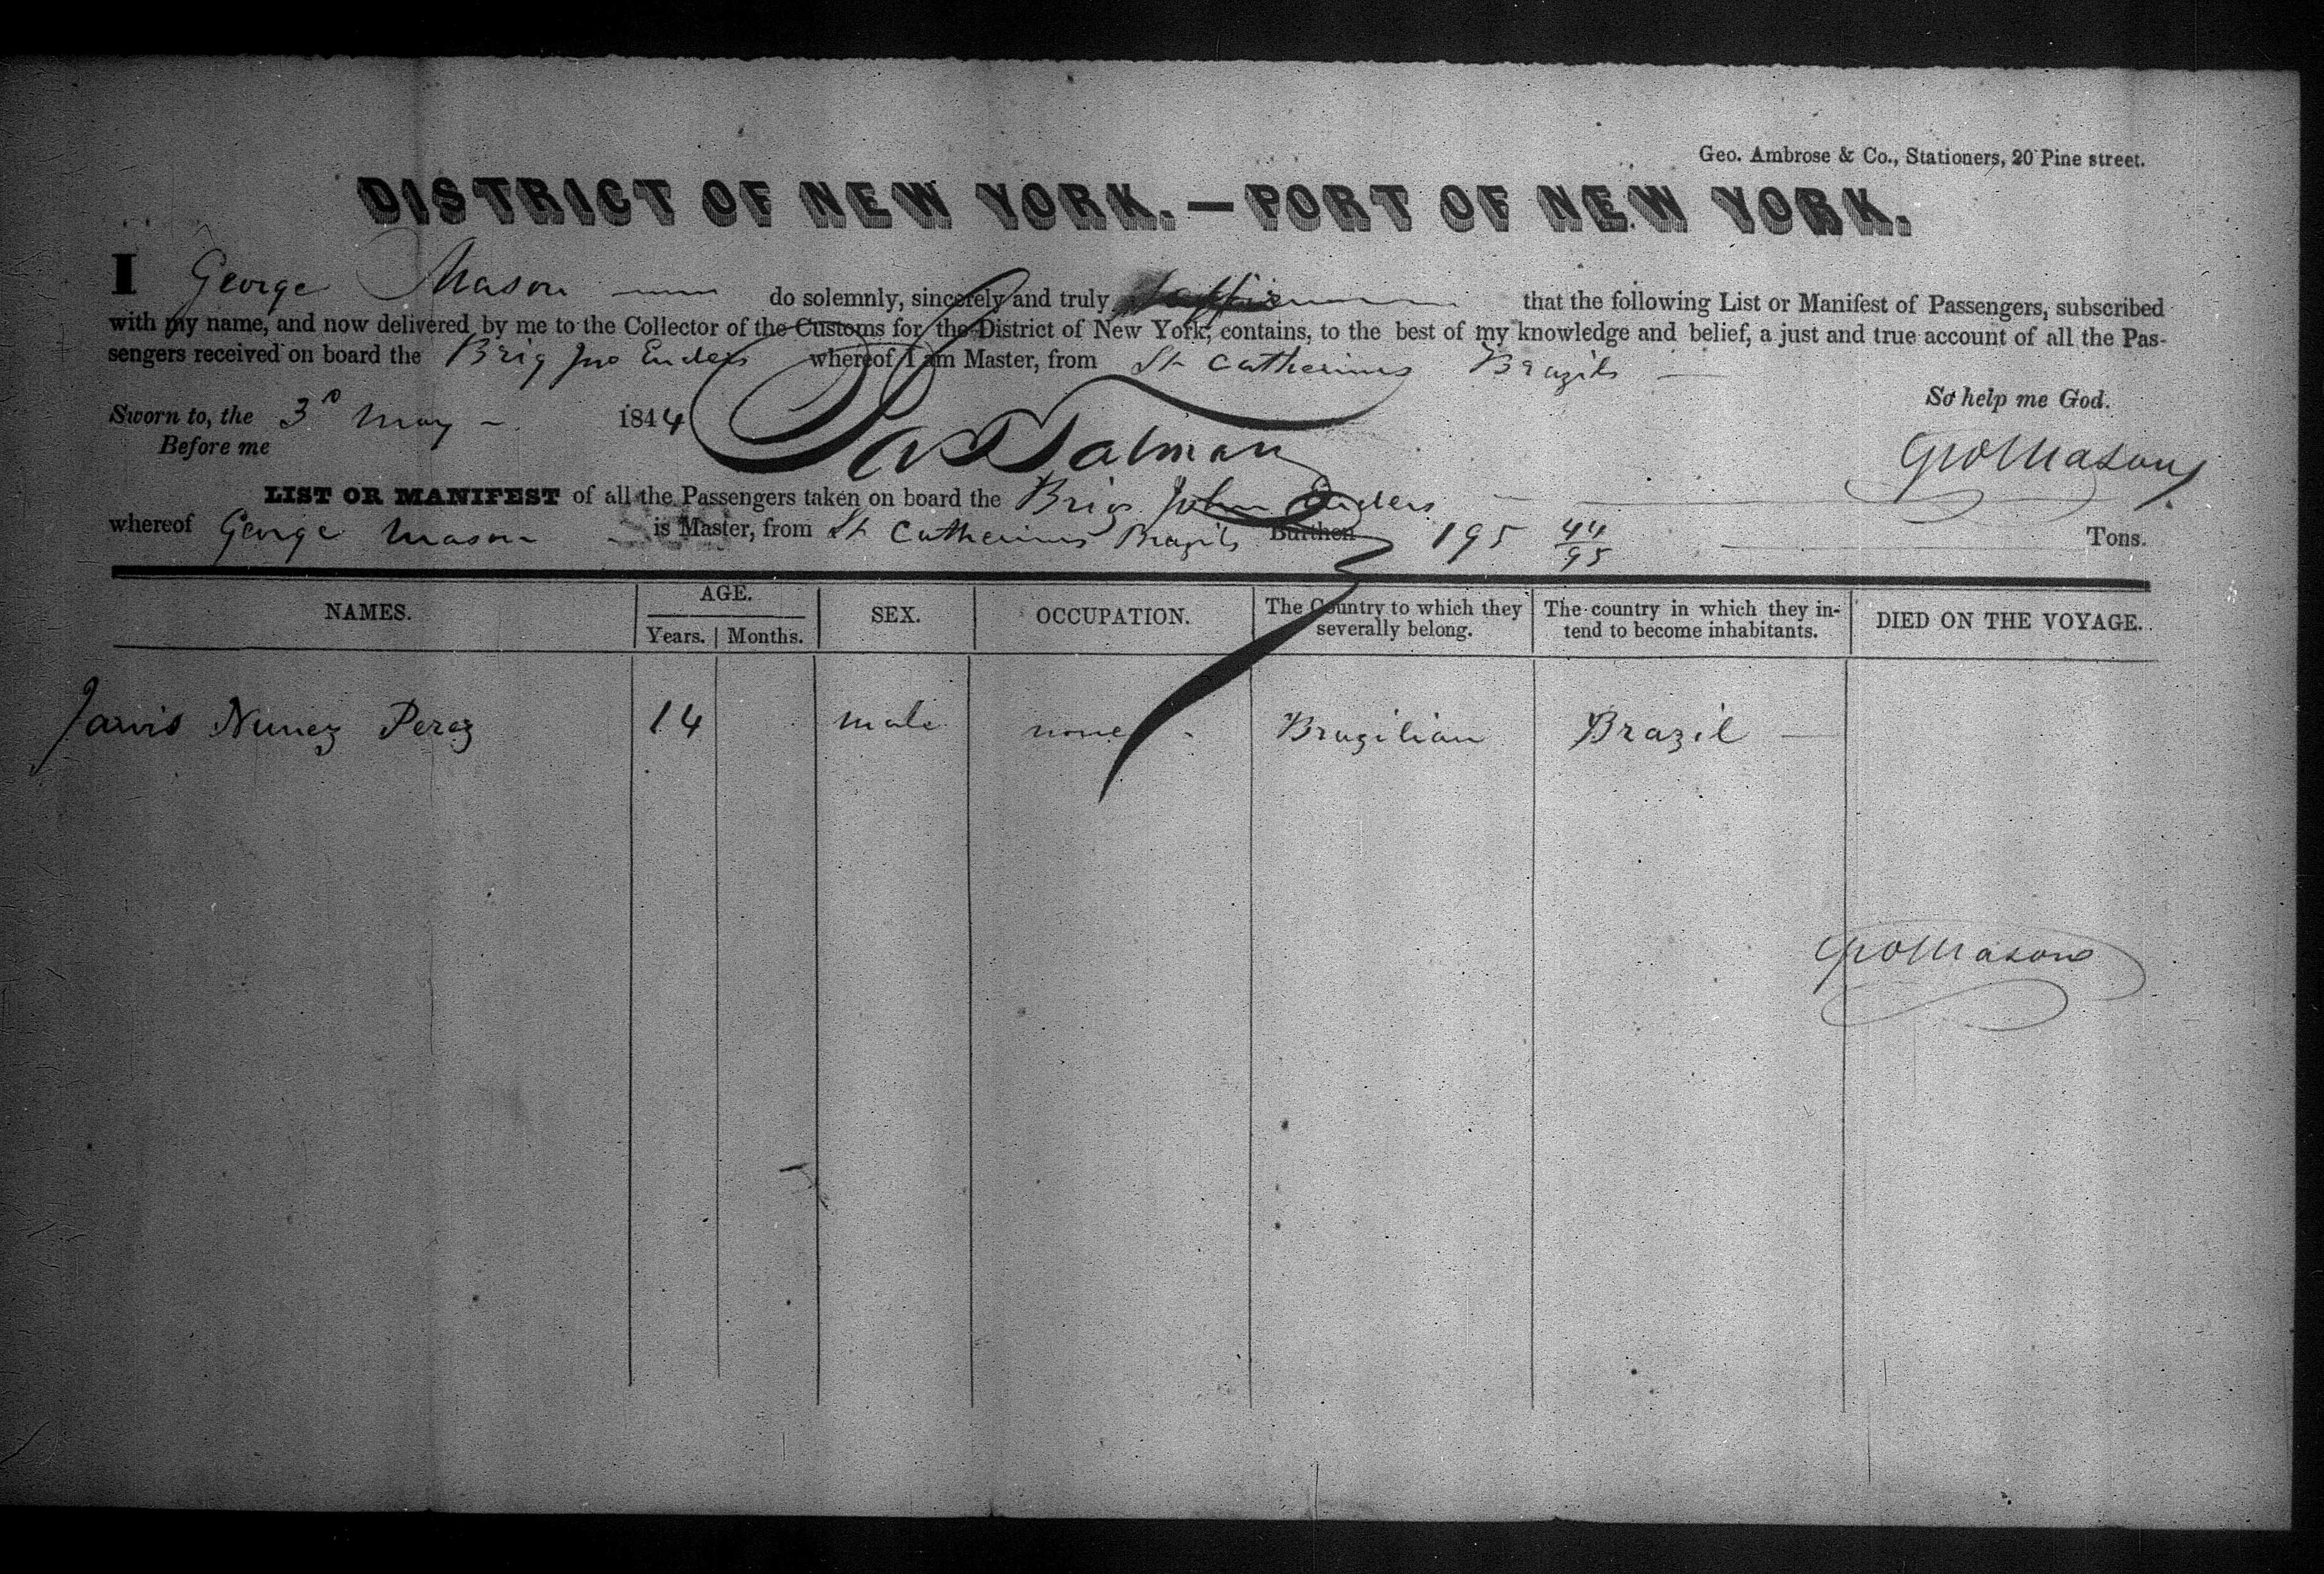 Geo. Ambrose & Co., Stationers, 20 Pine street.
DISTRICT OF NEW YORK.—PORT OF NEW YORK.
I George Mason do solemnly, sincerely and truly that the following List or Manifest of Passengers, subscribed
with my name, and now delivered by me to the Collector of the Customs for the District of New York, contains, to the best of my knowledge and belief, a just and true account of all the Pas-
sengers received on board the Brig Jno Enders whereof I am Master, from St Catherines Brazils
So help me God.
Sworn to, the 3d May 1844
Before me
Talman
Geo Mason
LIST OR MANIFEST of all the Passengers taken on board the Brig John Enders
whereof George Mason is Master, from St Catherines Brazils Burthen 195 44/95 Tons.
NAMES. AGE. SEX. OCCUPATION. The Country to which they severally belong. The country in which they in-tend to become inhabitants. DIED ON THE VOYAGE.
Years. Months.
Jarvis Nunez Perez 14 male none Brazilian Brazil
Geo Mason